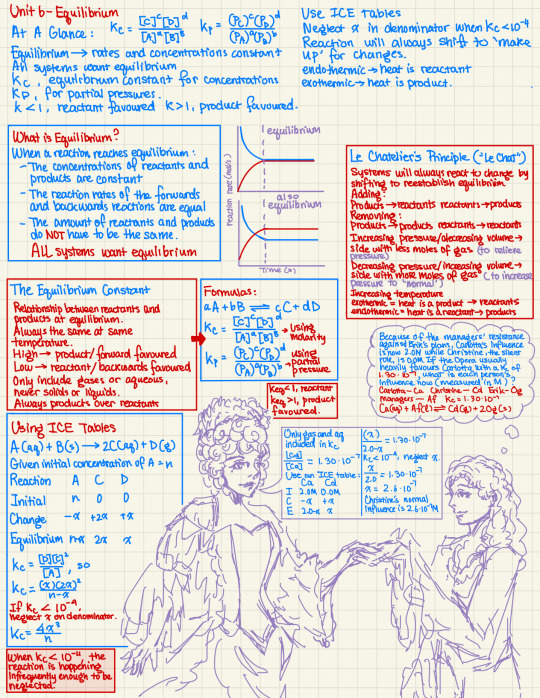 Unit 6- Equilibrium
At A Glance: Kc = [C]^c[D]^d / [A]^a[B]^b   Kp = (Pc)^c(PD)^d / (PA)^a(PB)^b
Equilibrium → rates and concentrations constant
All systems want equilibrium
Kc, equilibrium constant for concentrations
Kp, for partial pressures.
K<1, reactant favoured K>1, product favoured.
Use ICE tables
Neglect x in denominator when Kc<10^-4
Reaction will always shift to "make
up" for changes.
endothermic → heat is reactant
exothermic → heat is product.
What is Equilibrium?
When a reaction reaches equilibrium:
- The concentrations of reactants and
products are constant
- The reaction rates of the forwards
and backwards reactions are equal
- The amount of reactants and products
do NOT have to be the same.
ALL systems want equilibrium
Reaction rate (mol/s)
equilibrium
also
equilibrium
Time (s)
Le Chatelier's Principle ("Le Chat")
Systems will always react to change by
shifting to reestablish equilibrium
Adding:
Products → reactants reactants → products
Removing:
Products → products reactants → reactants
Increasing pressure/decreasing volume →
side with less moles of gas (to relieve
pressure)
Decreasing pressure/increasing volume →
side with more moles of gas (to increase
pressure to "normal")
Increasing temperature
exothermic = heat is a product → reactants
endothermic = heat is a reactant → products
The Equilibrium Constant
Relationship between reactants and
products at equilibrium.
Always the same at same
temperature.
High → product/forward favoured
Low → reactant/backwards favoured
Only include gases or aqueous,
never solids or liquids.
Always products over reactants
Formulas:
aA + bB ⇌ cC + dD
Kc = [C]^c[D]^d / [A]^a[B]^b → using
molarity
Kp = (Pc)^c(PD)^d / (PA)^a(PB)^b → using
partial
pressure
Keq<1, reactant
Keq>1, product
favoured.
Because of the managers' resistance
against Erik's plans, Carlotta's influence
is now 2.0M while Christine, the silent
role, is 0.0M. If the Opera usually
heavily favours Carlotta with a Kc of
1.30·10^-7, what is each person's
influence now (measured in M)?
Carlotta - Ca Christine - Cd Erik - Og
managers - Af Kc = 1.30·10^-7
Ca(aq) + Af(l) ⇌ Cd(g) + 2Og(s)
Using ICE Tables
A(aq) + B(s) → 2C(aq) + D(g)
Given initial concentration of A = n
Reaction A C D
Initial n 0 0
Change -x +2x +x
Equilibrium n-x 2x x
Kc = [D][C]^2 / [A], so
Kc = (x)(2x)^2 / n-x
If Kc < 10^-4,
neglect x on denominator.
Kc = 4x^3 / n
When Kc < 10^-4 the
reaction is happening
infrequently enough to be
neglected.
Only gas and aq
included in Kc
[Cd] / [Ca] = 1.30·10^-7
Use an ICE table:
Ca Cd
I 2.0M 0.0M
C -x +x
E 2.0-x x
(x) / 2.0-x = 1.30·10^-7
Kc<10^-4, neglect x.
x / 2.0 = 1.30·10^-7
x = 2.6·10^-7
Christine's normal
influence is 2.6·10^-7M